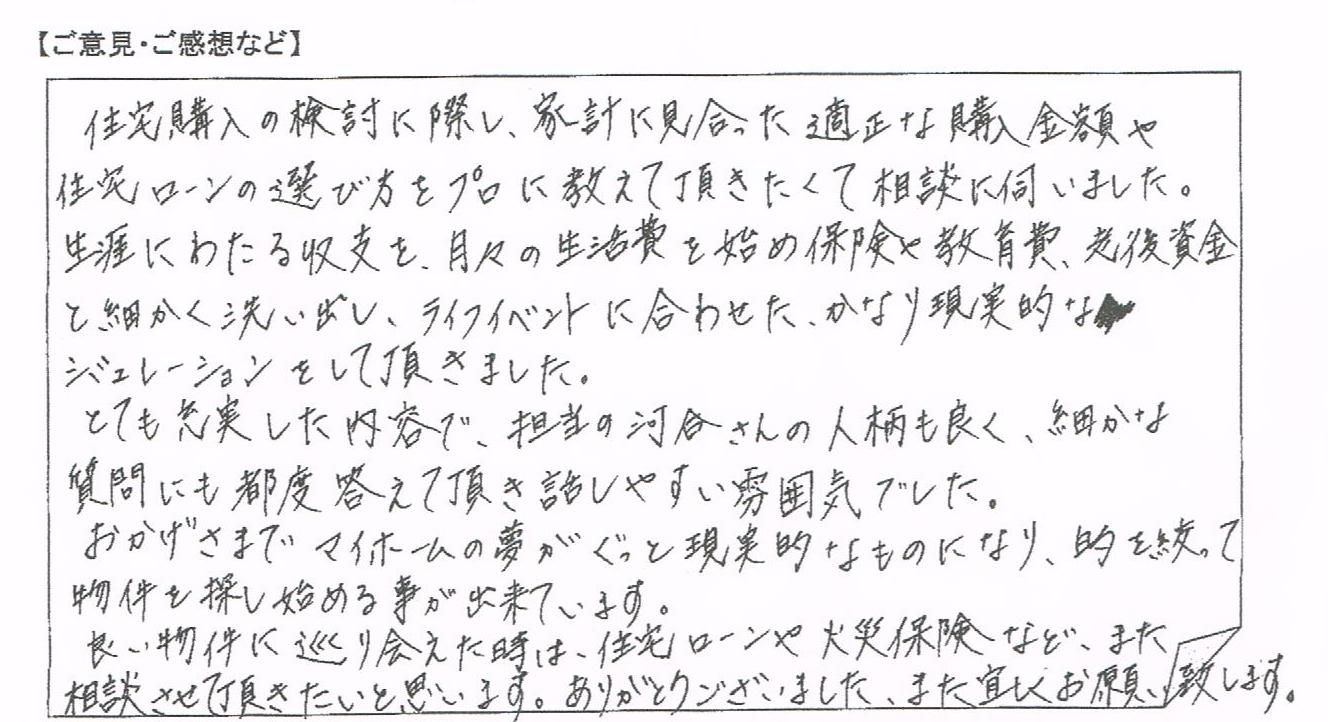 【ご意見・ご感想など】
住宅購入の検討に際し、家計に見合った適正な購入金額や
住宅ローンの選び方をプロに教えて頂きたくて相談に伺いました。
生涯にわたる収支を、月々の生活費を始め保険や教育費、老後資金
と細かく洗い出し、ライフイベントに合わせた、かなり現実的な
シミュレーションをして頂きました。
とても充実した内容で、担当の河合さんの人柄も良く、細かな
質問にも都度答えて頂き話しやすい雰囲気でした。
おかげさまでマイホームの夢がぐっと現実的なものになり、的を絞って
物件を探し始める事が出来ています。
良い物件に巡り会えた時は、住宅ローンや火災保険など、また
相談させて頂きたいと思います。ありがとうございました、また宜しくお願い致します。